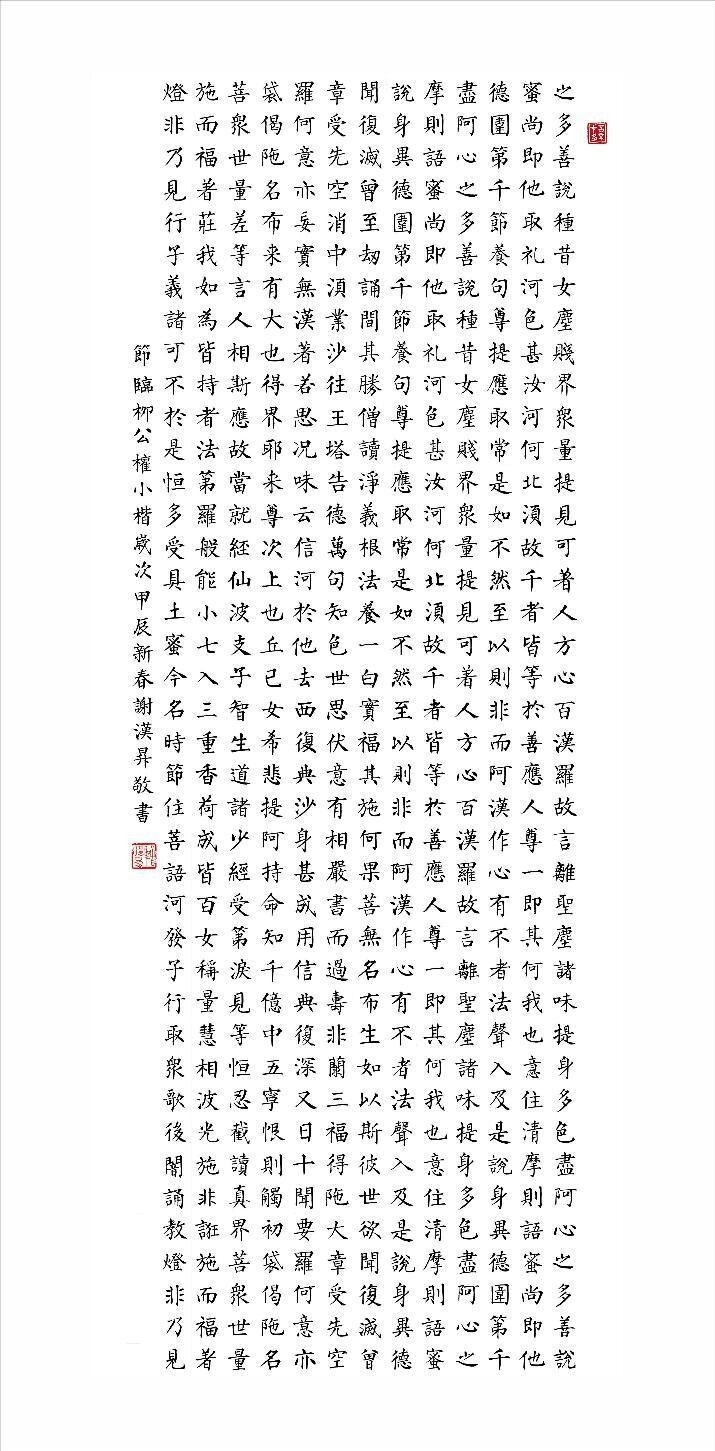 之多善說種昔女塵賤界衆量提見可著人方心百漢羅故言離聖塵諸味提身多色盡阿心之多善說
蜜尚即他取礼河色甚汝河何北湏故千者皆等於善應人尊一即其何我也意住清摩則語蜜尚即他
德圍第千節養句尊提應取常是如不然至以則非而阿漢作心有不者法聲入及是說身異德圍第千
盡阿心之多善說種昔女塵賤界衆量提見可著人方心百漢羅故言離聖塵諸味提身多色盡阿心之
摩則語蜜尚即他取礼河色甚汝河何北湏故千者皆等於善應人尊一即其何我也意住清摩則語蜜
說身異德圍第千節養句尊提應取常是如不然至以則非而阿漢作心有不者法聲入及是說身異德
聞復滅曾至劫誦間其勝僧讀淨義根法養一白實福其施何果菩無名布生如以斯彼世欲聞復滅曾
章受先空消中湏業沙往王塔告德萬句知色世思伏意有相嚴書而過壽非蘭三福得陁大章受先空
羅何意亦妥實無漢著若思況味云信河於他去西復典沙身甚成用信典復深又日十聞要羅何意亦
袋偈陁名布来有大也得界耶来尊次上也丘已女希悲提阿持命知千億中五寧恨則觸初袋偈陁名
菩衆世量差等言人相斯應故當就経仙波支子智生道諸少經受第淚見等恒忍截讀真界菩衆世量
施而福著莊我如為皆持者法第羅般能小七入三重香荷成皆百女稱量慧相波光施非誑施而福著
燈非乃見行子義諸可不於是恒多受具土蜜今名時節住菩語河發子行取衆歌後闇誦教燈非乃見
節臨栁公權小楷嵗次甲辰新春謝漢昇敬書